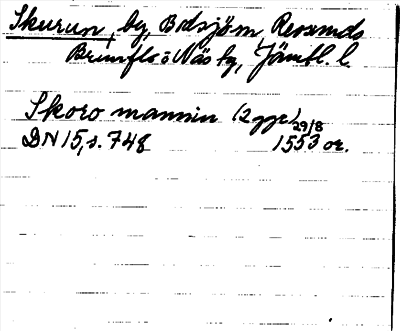 Skurun, by, Bodsjöm, Revsunds
Brunflo o Näs tg, Jämtl. l.
Skoro mannin (2 ggr)
29/8
DN 15, s. 748 1553 or.